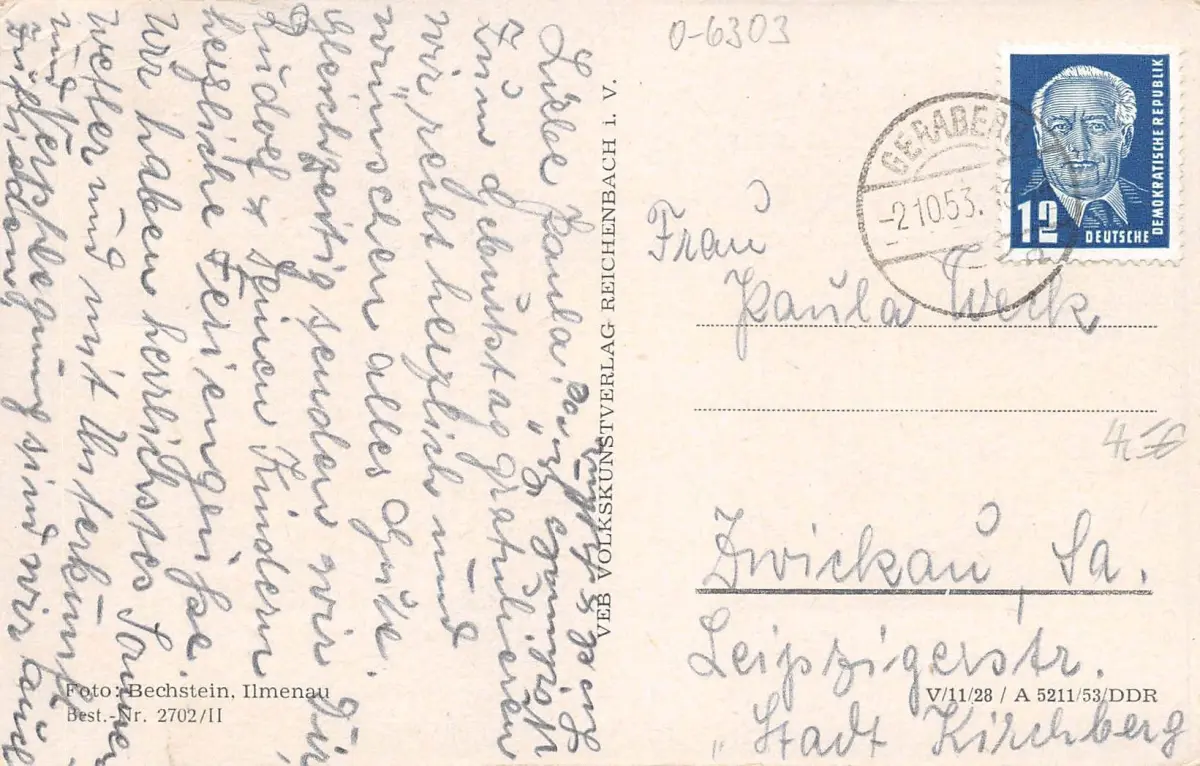 Liebe Paula!
Zum Gebutstag gratulieren
wir recht herzlich und
wünschen alles Gute.
Gleichzeitig senden wir Dir,
Rudolf & Deinen Kindern
herzliche Feriengrüße.
Wir haben herrlichstes Sommer
wetter und mit Unterkunft
und Verpflegung sind wir auch
zufrieden
VEB VOLKSKUNSTVERLAG REICHENBACH i. V.
Foto: Bechstein, Ilmenau
Best.-Nr. 2702/II
0-6303
GERABERG
-2.10.53.
a
12
DEUTSCHE
DEMOKRATISCHE REPUBLIK
Frau
Paula Werk
Zwickau, Sa.
Leipzigerstr.
"Stadt Kirchberg
V/11/28 / A 5211/53/DDR